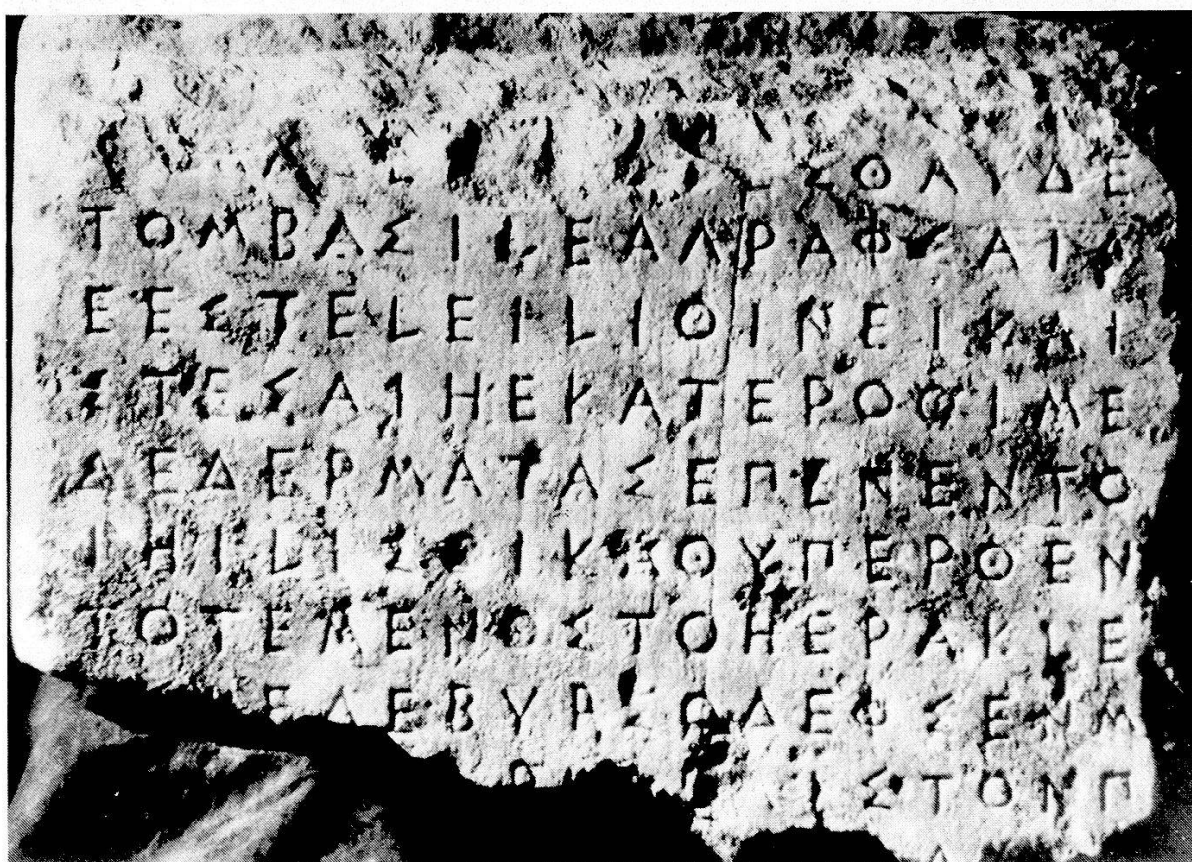 ΣΘΑΙΔΕ
ΤΟΜΒΑΣΙΛΕΑΓΡΑΦΣΑΙΔ
ΕΕΣΤΕΛΕΙΛΙΘΙΝΕΙΚΑΙ
ΣΤΕΣΑΙΗΕΚΑΤΕΡΟΘΙΜΕ
ΔΕΔΕΡΜΑΤΑΣΕΠΕΝΕΝΤΟ
ΙΗΙΛΙΣΟΙΚΑΘΥΠΕΡΘΕΝ
ΤΟΤΕΜΕΝΟΣΤΟΗΕΡΑΚΛΕ
ΕΔΕΒΥΡΣΟΔΕΦΣΕΝΜ
ΙΣΤΟΝΠ